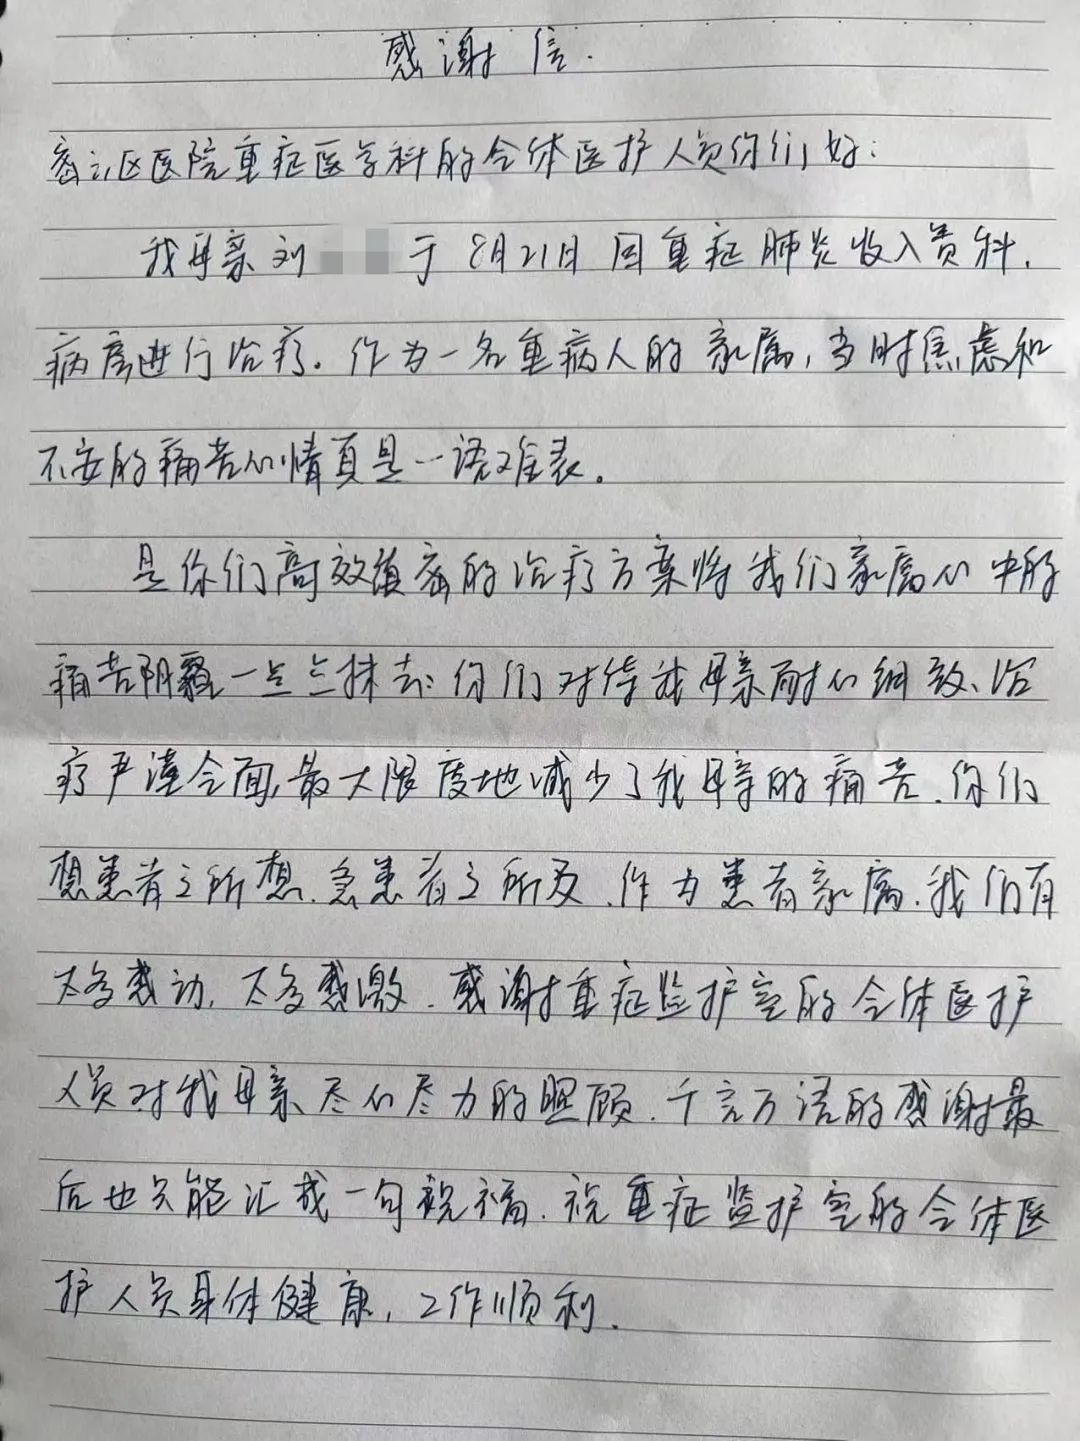 感谢信.
密云区医院重症医学科的全体医护人员你们好:
我母亲刘 于8月21日因重症肺炎收入贵科,
病房进行治疗。作为一名重病人的家属,当时焦虑和
不安的痛苦心情真是一语难表。
是你们高效缜密的治疗方案将我们家属心中的
痛苦阴霾一点点抹去;你们对待我母亲耐心细致、治
疗严谨全面,最大限度地减少了我母亲的痛苦.你们
想患者之所想.急患者之所及.作为患者家属.我们有
太多感动,太多感激.感谢重症监护室的全体医护
人员对我母亲尽心尽力的照顾.千言万语的感谢最
后也只能汇成一句祝福.祝重症监护室的全体医
护人员身体健康,工作顺利.